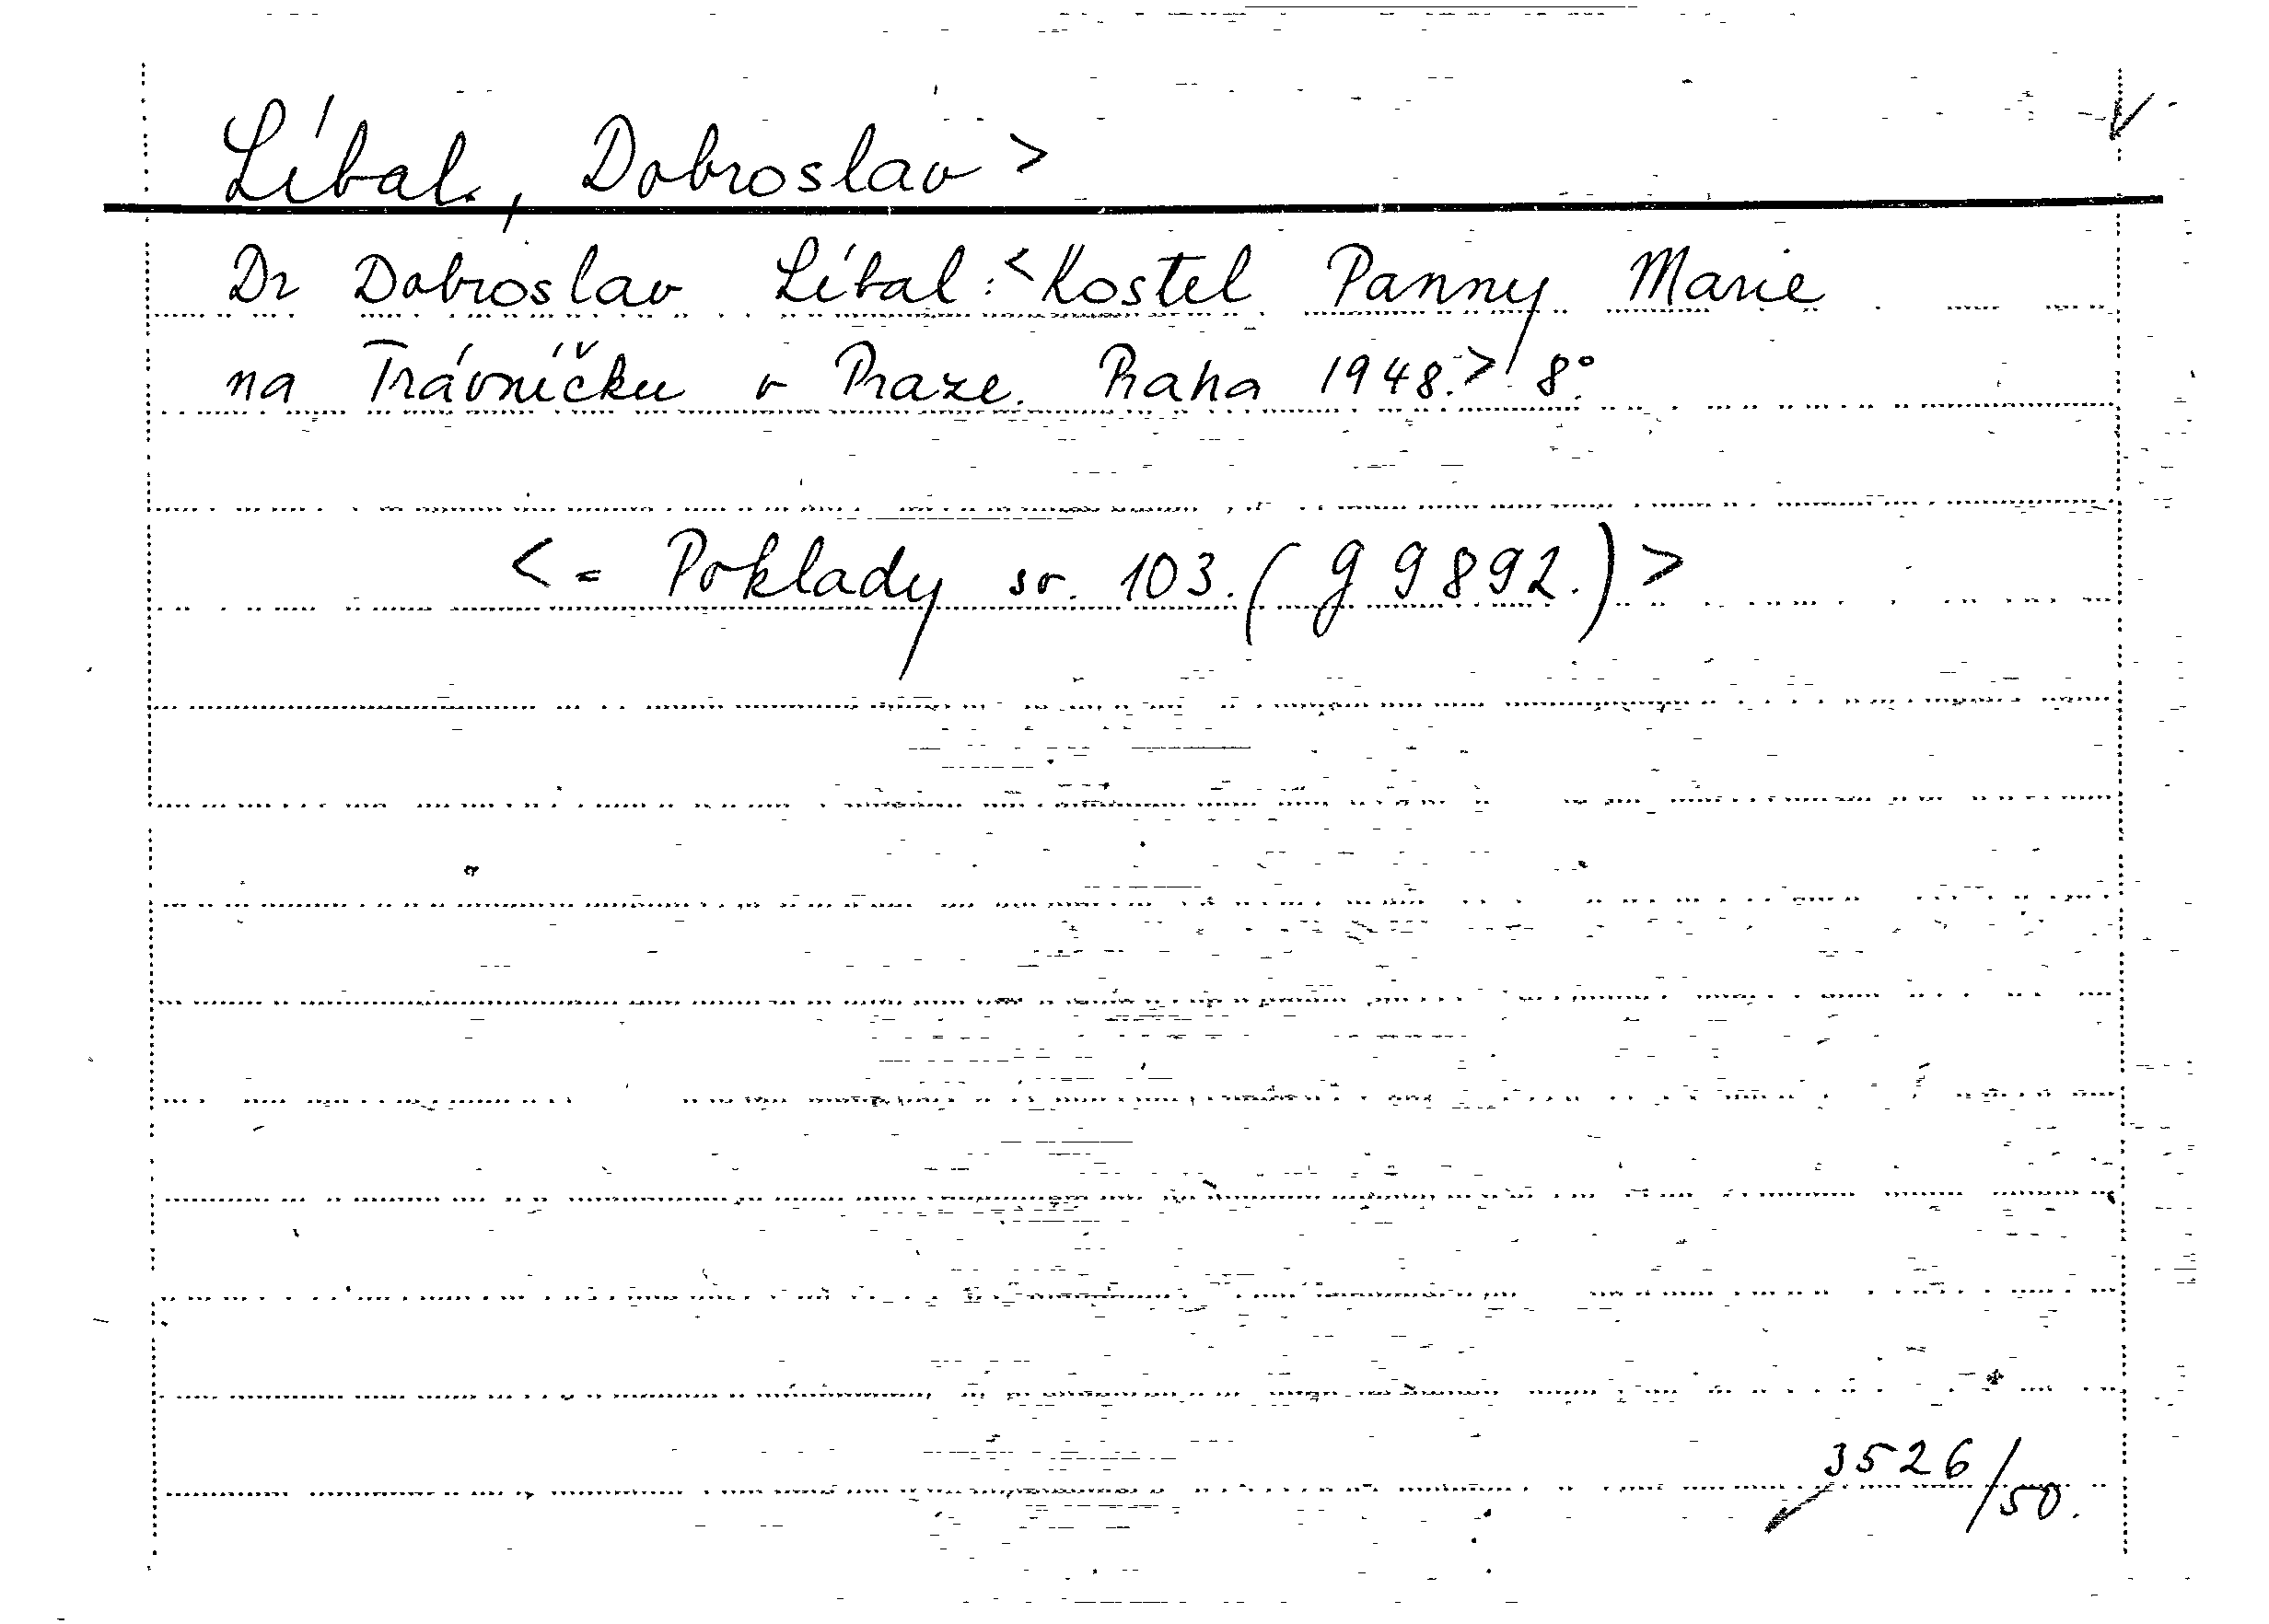 Líbal, Dobroslav >
Dr Dobroslav Líbal: <Kostel Panny Marie
na Trávníčku v Praze. Praha 1948.> 8°.
< = Poklady sv. 103. (g 9892.) >
3526/50.